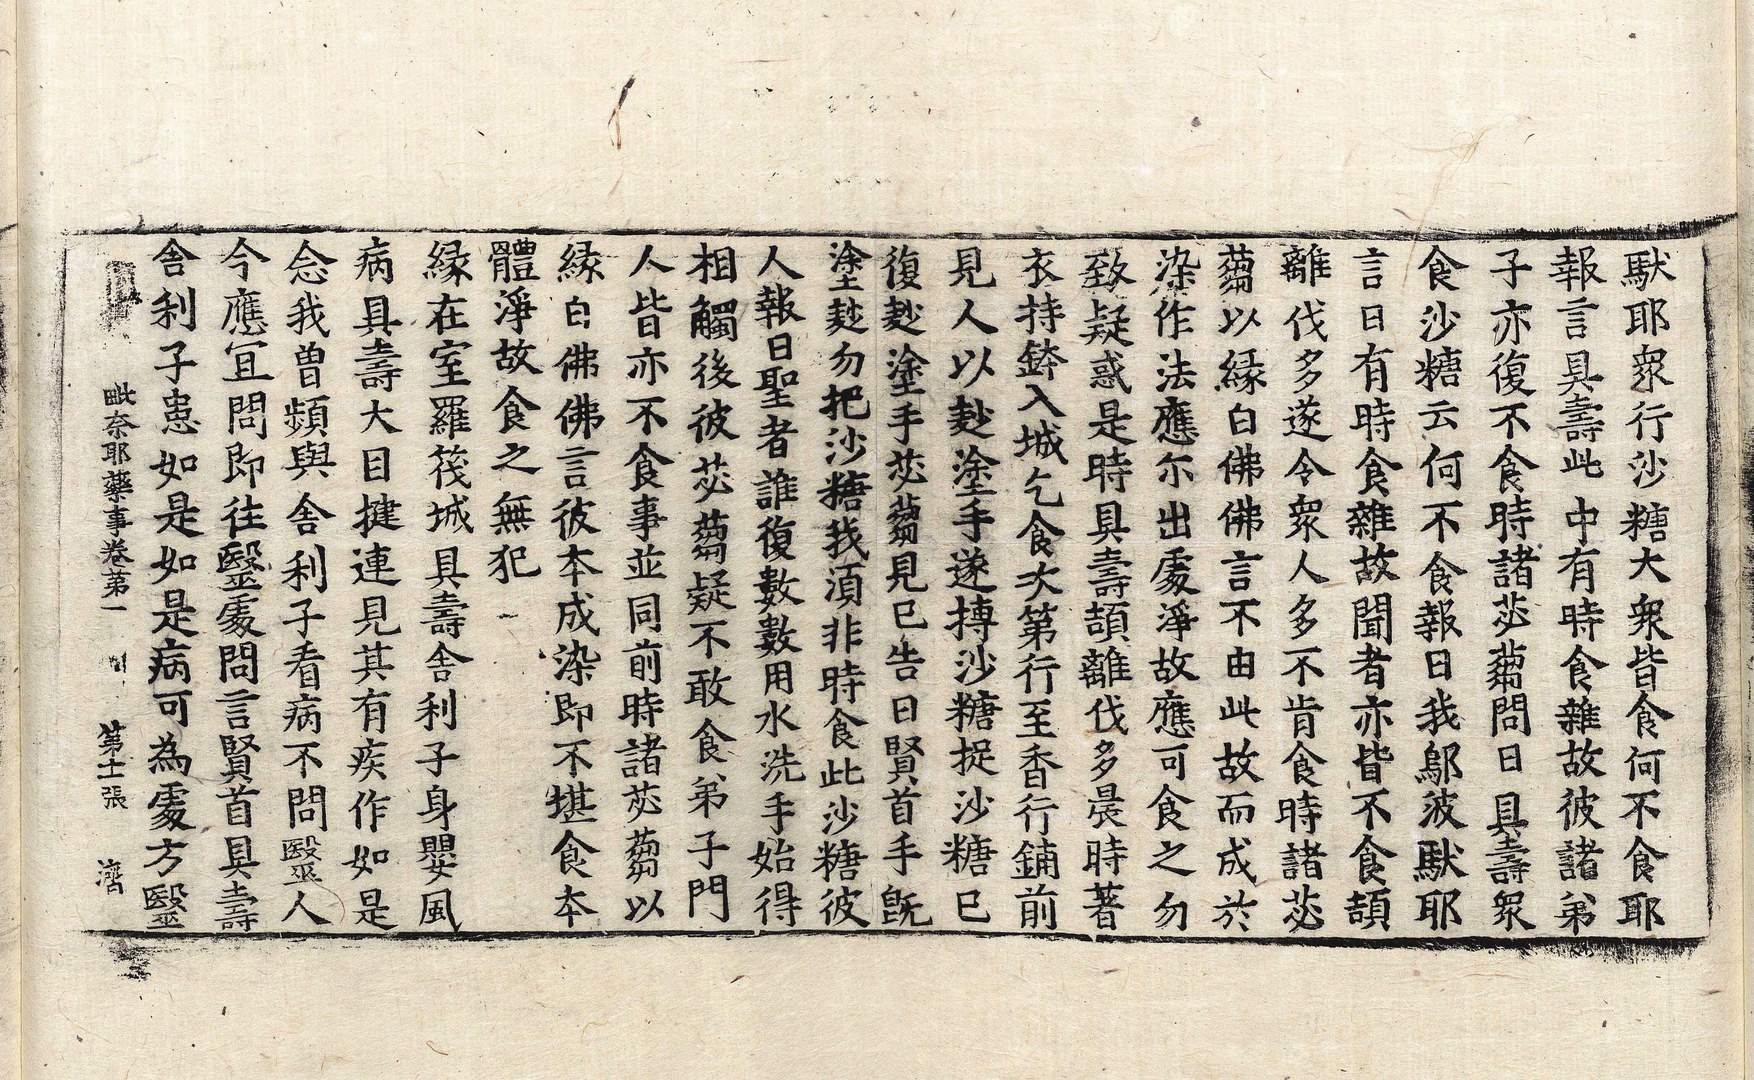 馱耶眾行沙糖大眾皆食何不食耶
報言具壽此中有時食雜故彼諸弟
子亦復不食時諸苾蒭問曰具壽眾
食沙糖云何不食報曰我鄔波馱耶
言曰有時食雜故聞者亦皆不食頡
離伐多遂令眾人多不肯食時諸苾
蒭以緣白佛佛言不由此故而成於
染作法應尒出處淨故應可食之勿
致疑惑是時具壽頡離伐多晨時著
衣持鉢入城乞食次第行至香行鋪前
見人以麨塗手遂摶沙糖捉沙糖已
復麨塗手苾蒭見已告曰賢首手旣
塗麨勿把沙糖我須非時食此沙糖彼
人報曰聖者誰復數數用水洗手始得
相觸後彼苾蒭疑不敢食弟子門
人皆亦不食事並同前時諸苾蒭以
緣白佛佛言彼本成染即不堪食本
體淨故食之無犯
緣在室羅筏城具壽舍利子身嬰風
病具壽大目揵連見其有疾作如是
念我曾頻與舍利子看病不問毉人
今應冝問即往毉處問言賢首具壽
舍利子患如是如是病可為處方毉
毗奈耶藥事卷第一 第士張 濟